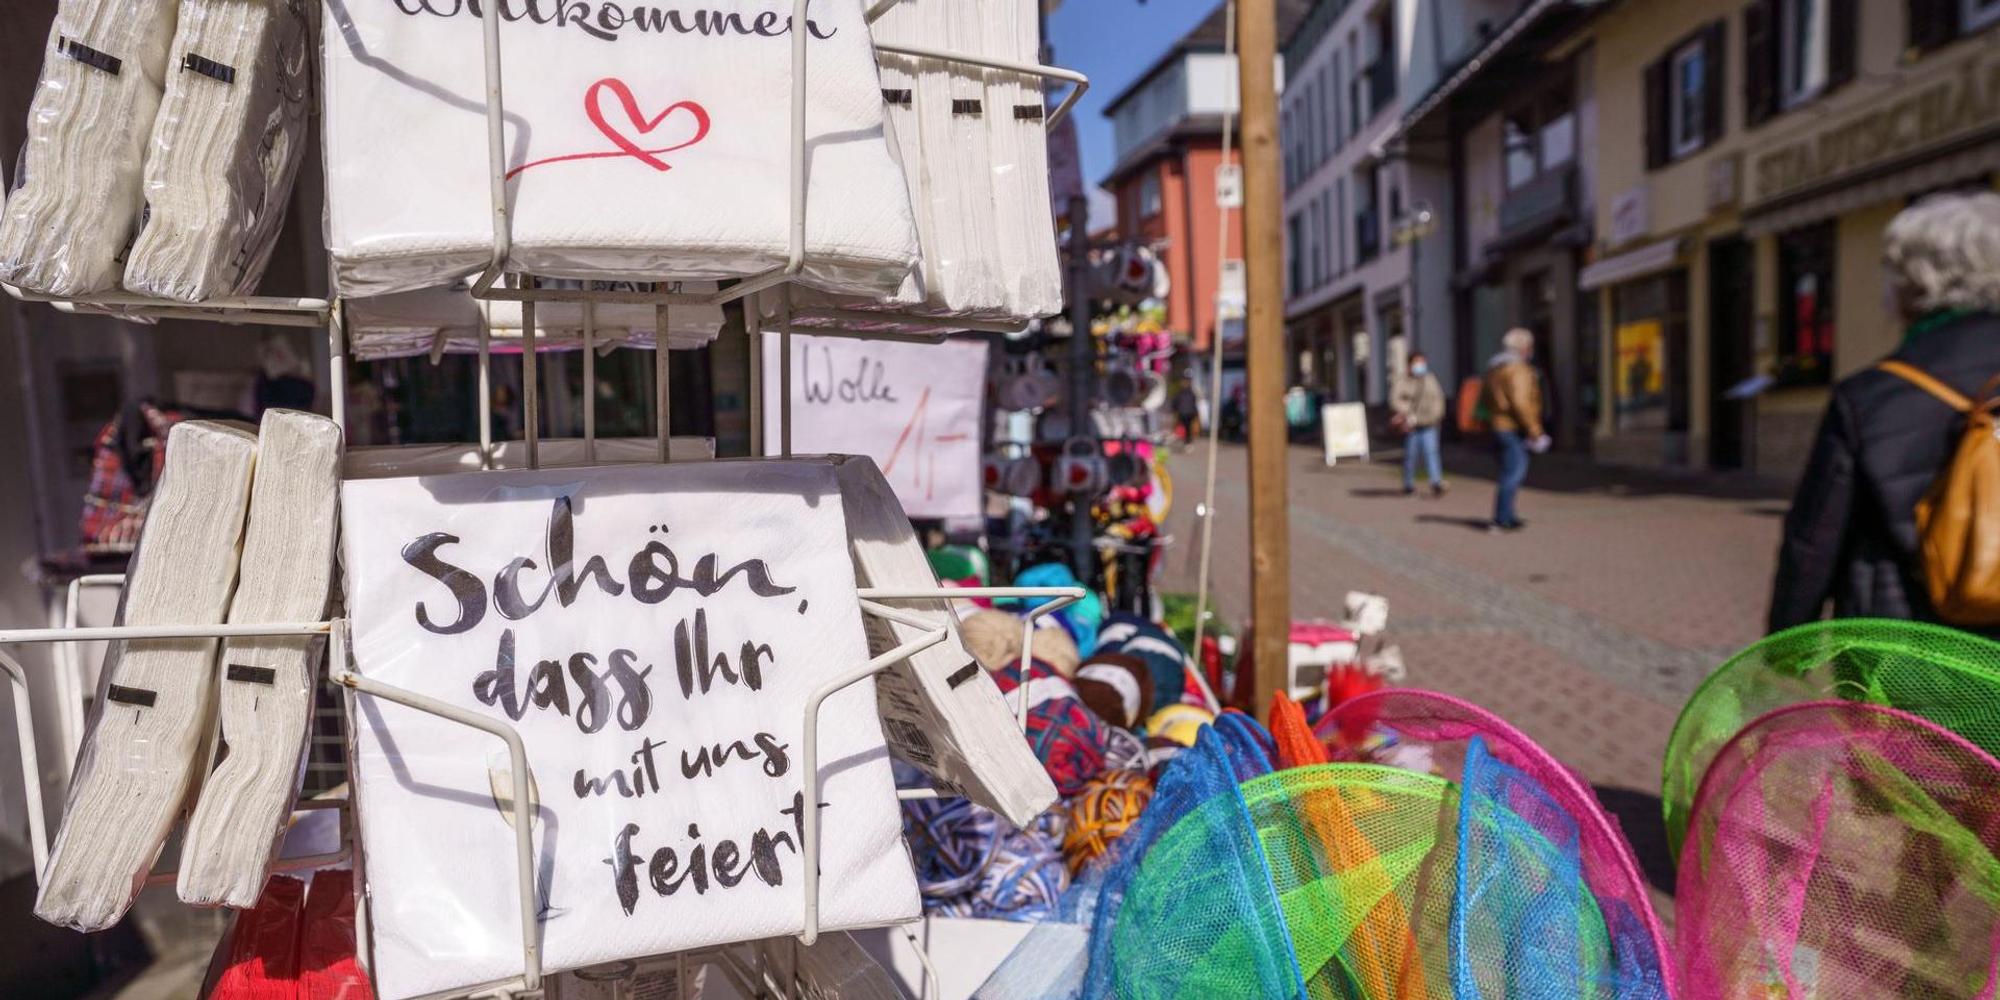 Willkommen
Wolle
1,-
Schön,
dass Ihr
mit uns
feiert